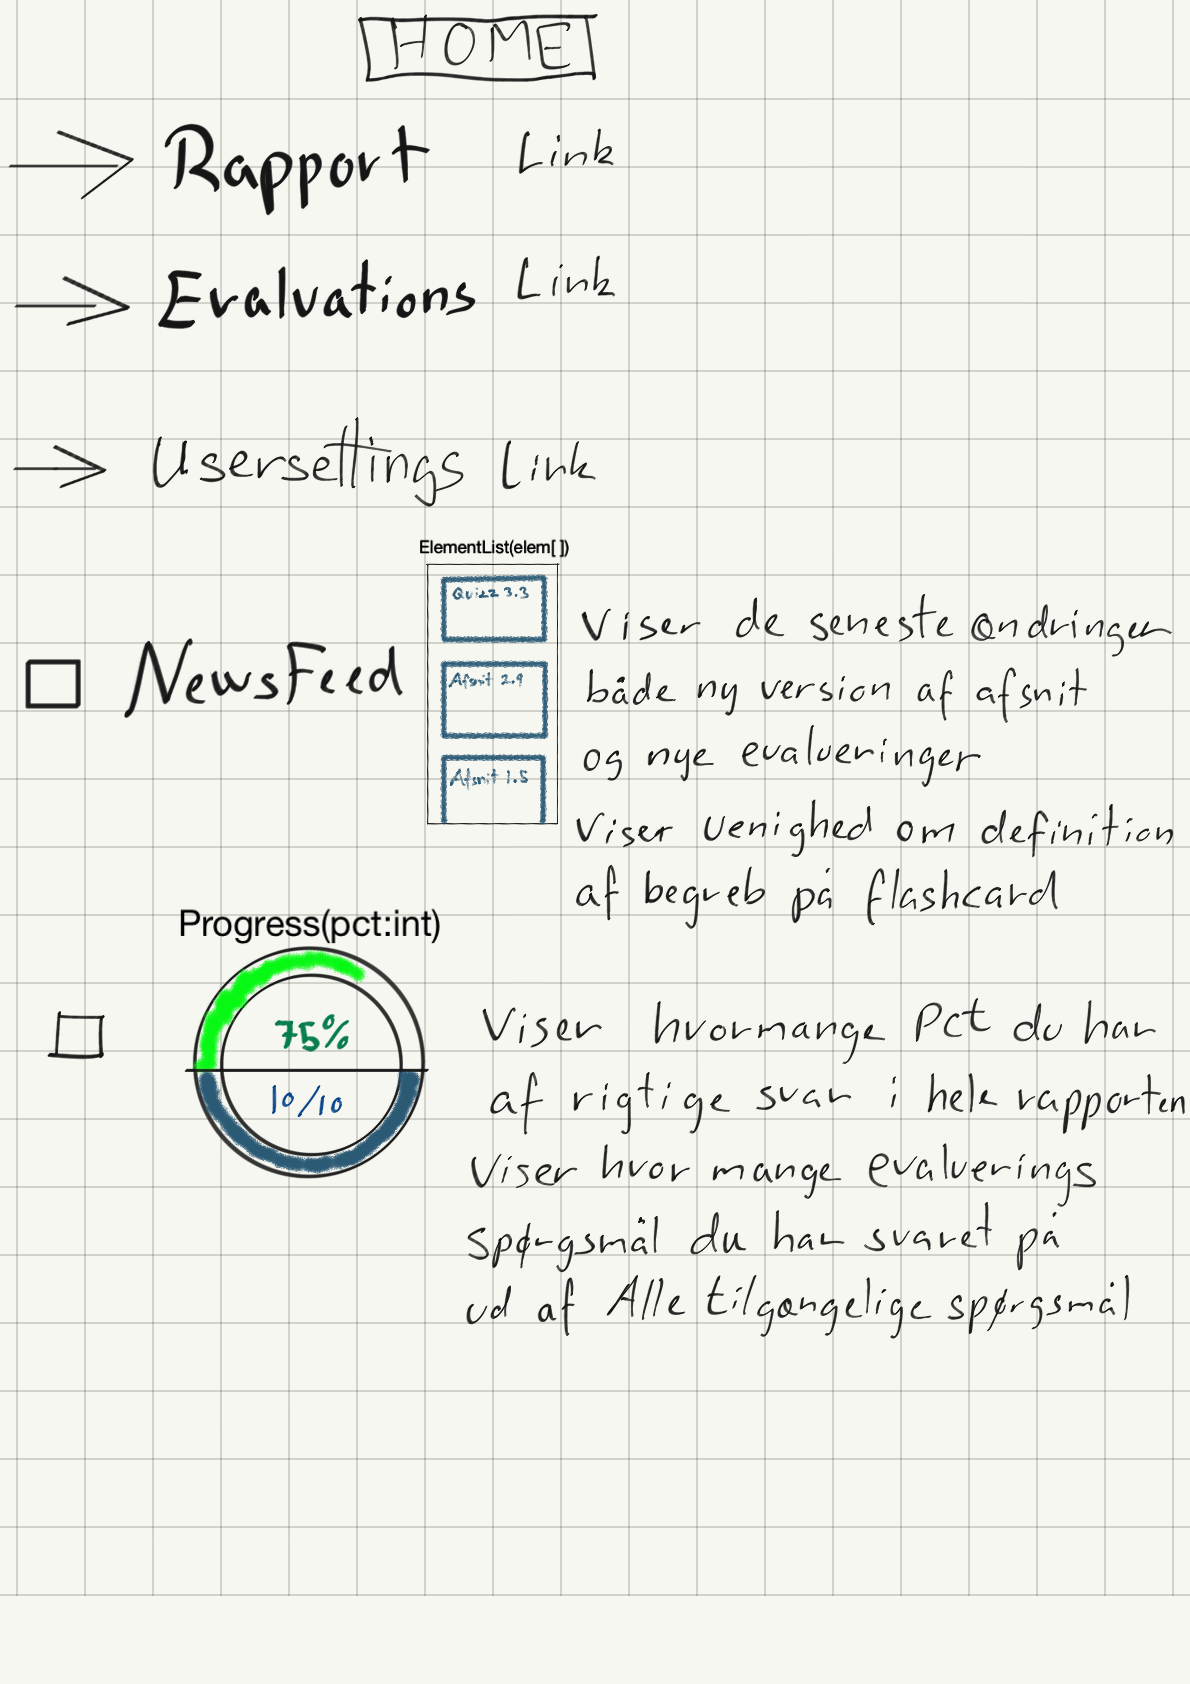 HOME
Rapport Link
Evaluations Link
Usersettings Link
ElementList(elem[ ])
Quizz 3.3
Afsnit 2.9
Afsnit 1.5
NewsFeed
Viser de seneste ændringer
både ny version af afsnit
og nye evalueringer
Viser uenighed om definition
af begreb på flashcard
Progress(pct:int)
75%
10/10
Viser hvormange Pct du har
af rigtige svar i hele rapporten
Viser hvor mange evaluerings
spørgsmål du har svaret på
ud af Alle tilgængelige spørgsmål